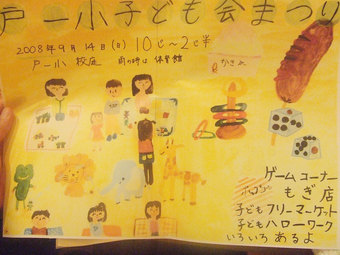 戸一小子ども会まつり
2008年9月14日(日) 10じ~2じ半
戸一小 校庭 雨の時は 体育館
かきごおり
ゲームコーナー
もぎ店
子どもフリーマーケット
子どもハローワーク
いろいろあるよ